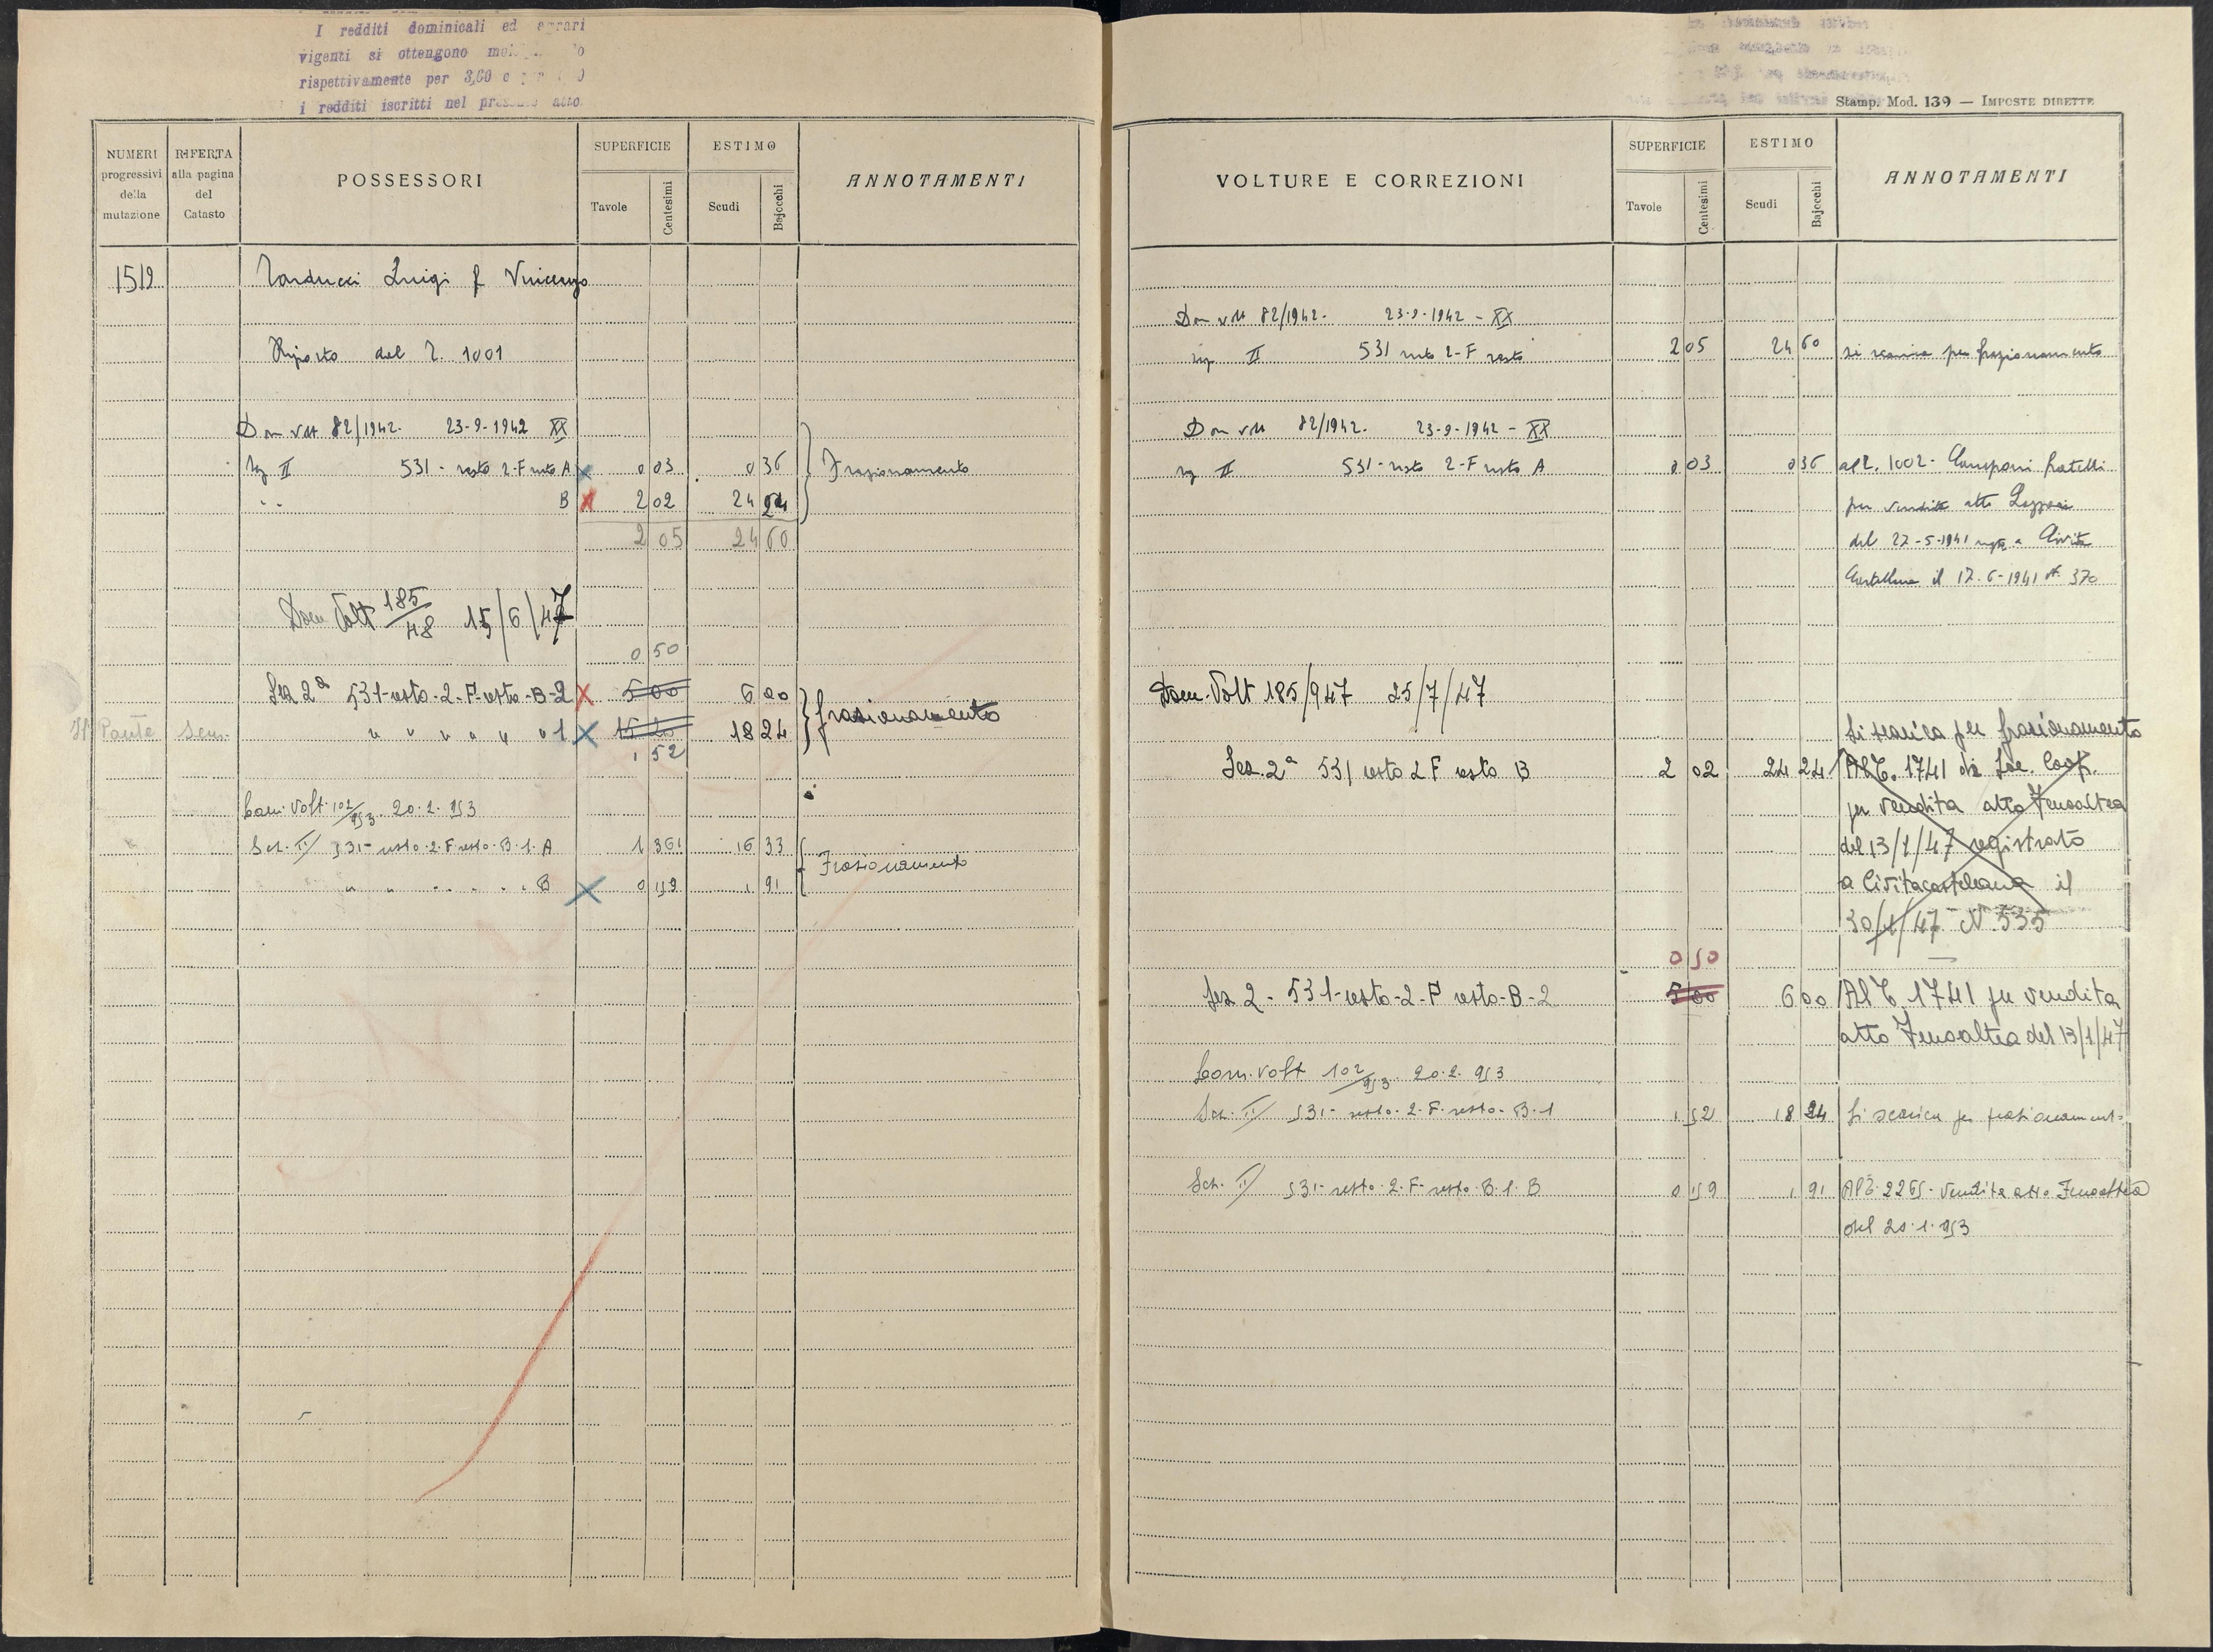 I redditi dominicali ed agrari
vigenti si ottengono
rispettivamente per 3,60 e per
i redditi iscritti nel presente atto.
NUMERI progressivi della mutazione
RIFERTA alla pagina del Catasto
POSSESSORI
SUPERFICIE
Tavole Centesimi
ESTIMO
Scudi Bajocchi
ANNOTAMENTI
1519 Tarducci Luigi f Vincenzo
Riporto dal T. 1001
Dom volt 82/1942. 23-9-1942 XX
Sez II 531 - resto 2-F resto A 0 03 0 36 Frazionamento
" B 2 02 24 24
2 05 24 60
Dom Volt 185/48 15/6/47
0 50
Sez 2ª 531-resto-2-F-resto-B-2 5 00 6 00 frazionamento
" " " " " " 1 15 20 18 24
1 52
Com. Volt. 102/953 20.2.953
Sez. II/ 531- resto.2.F.resto.B.1.A 1 361 16 33 Frazionamento
" " " " " B 0 159 1 91
Stamp. Mod. 139 — IMPOSTE DIRETTE
VOLTURE E CORREZIONI
SUPERFICIE
Tavole Centesimi
ESTIMO
Scudi Bajocchi
ANNOTAMENTI
Dom volt 82/1942. 23-9-1942 - XX
Sez II 531 resto 2-F resto 2 05 24 60 si scarica per frazionamento
Dom volt 82/1942. 23-9-1942 - XX
Sez II 531-resto 2-F resto A 0 03 0 36 al T. 1002 - fratelli
per vendita atto
del 27-5-1941 a Civita
Castellana il 17-6-1941 N. 370
Dom. Volt 185/947 25/7/47
Si scarica per frazionamento
Sez. 2ª 531 resto 2 F resto B 2 02 24 24 Al T. 1741 di Soc. Coop.
per vendita atto Fenoaltea
del 13/1/47 registrato
a Civitacastellana il
30/1/47 N. 535
0 50
Sez 2 - 531-resto-2-F resto-B-2 5 00 6 00 Al T. 1741 per vendita
atto Fenoaltea del 13/1/47
Com. Volt 102/953 20.2.953
Sez. II/ 531- resto.2.F.resto.B.1 1 52 18 24 Si scarica per frazionamento
Sez. II/ 531- resto.2.F-resto.B.1.B 0 159 1 91 Al T. 2265- Vendita atto Fenoaltea
del 20.1.953